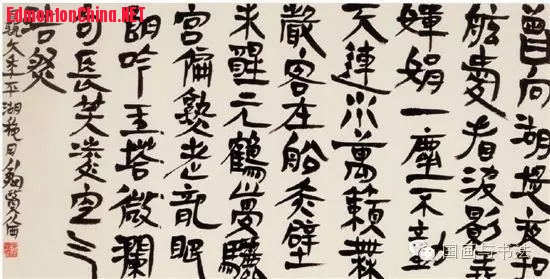 EdmontonChina.NET
曾向湖堤夜扣
舷愛看波影弄
嬋娟一塵不動
天連水萬籟無
聲客在船赤壁
未醒元鶴夢驪
宮偏熟老龍眠
朗吟玉塔微瀾
句長笑凌空氣
浩然
未平湖秋日
国画与书法